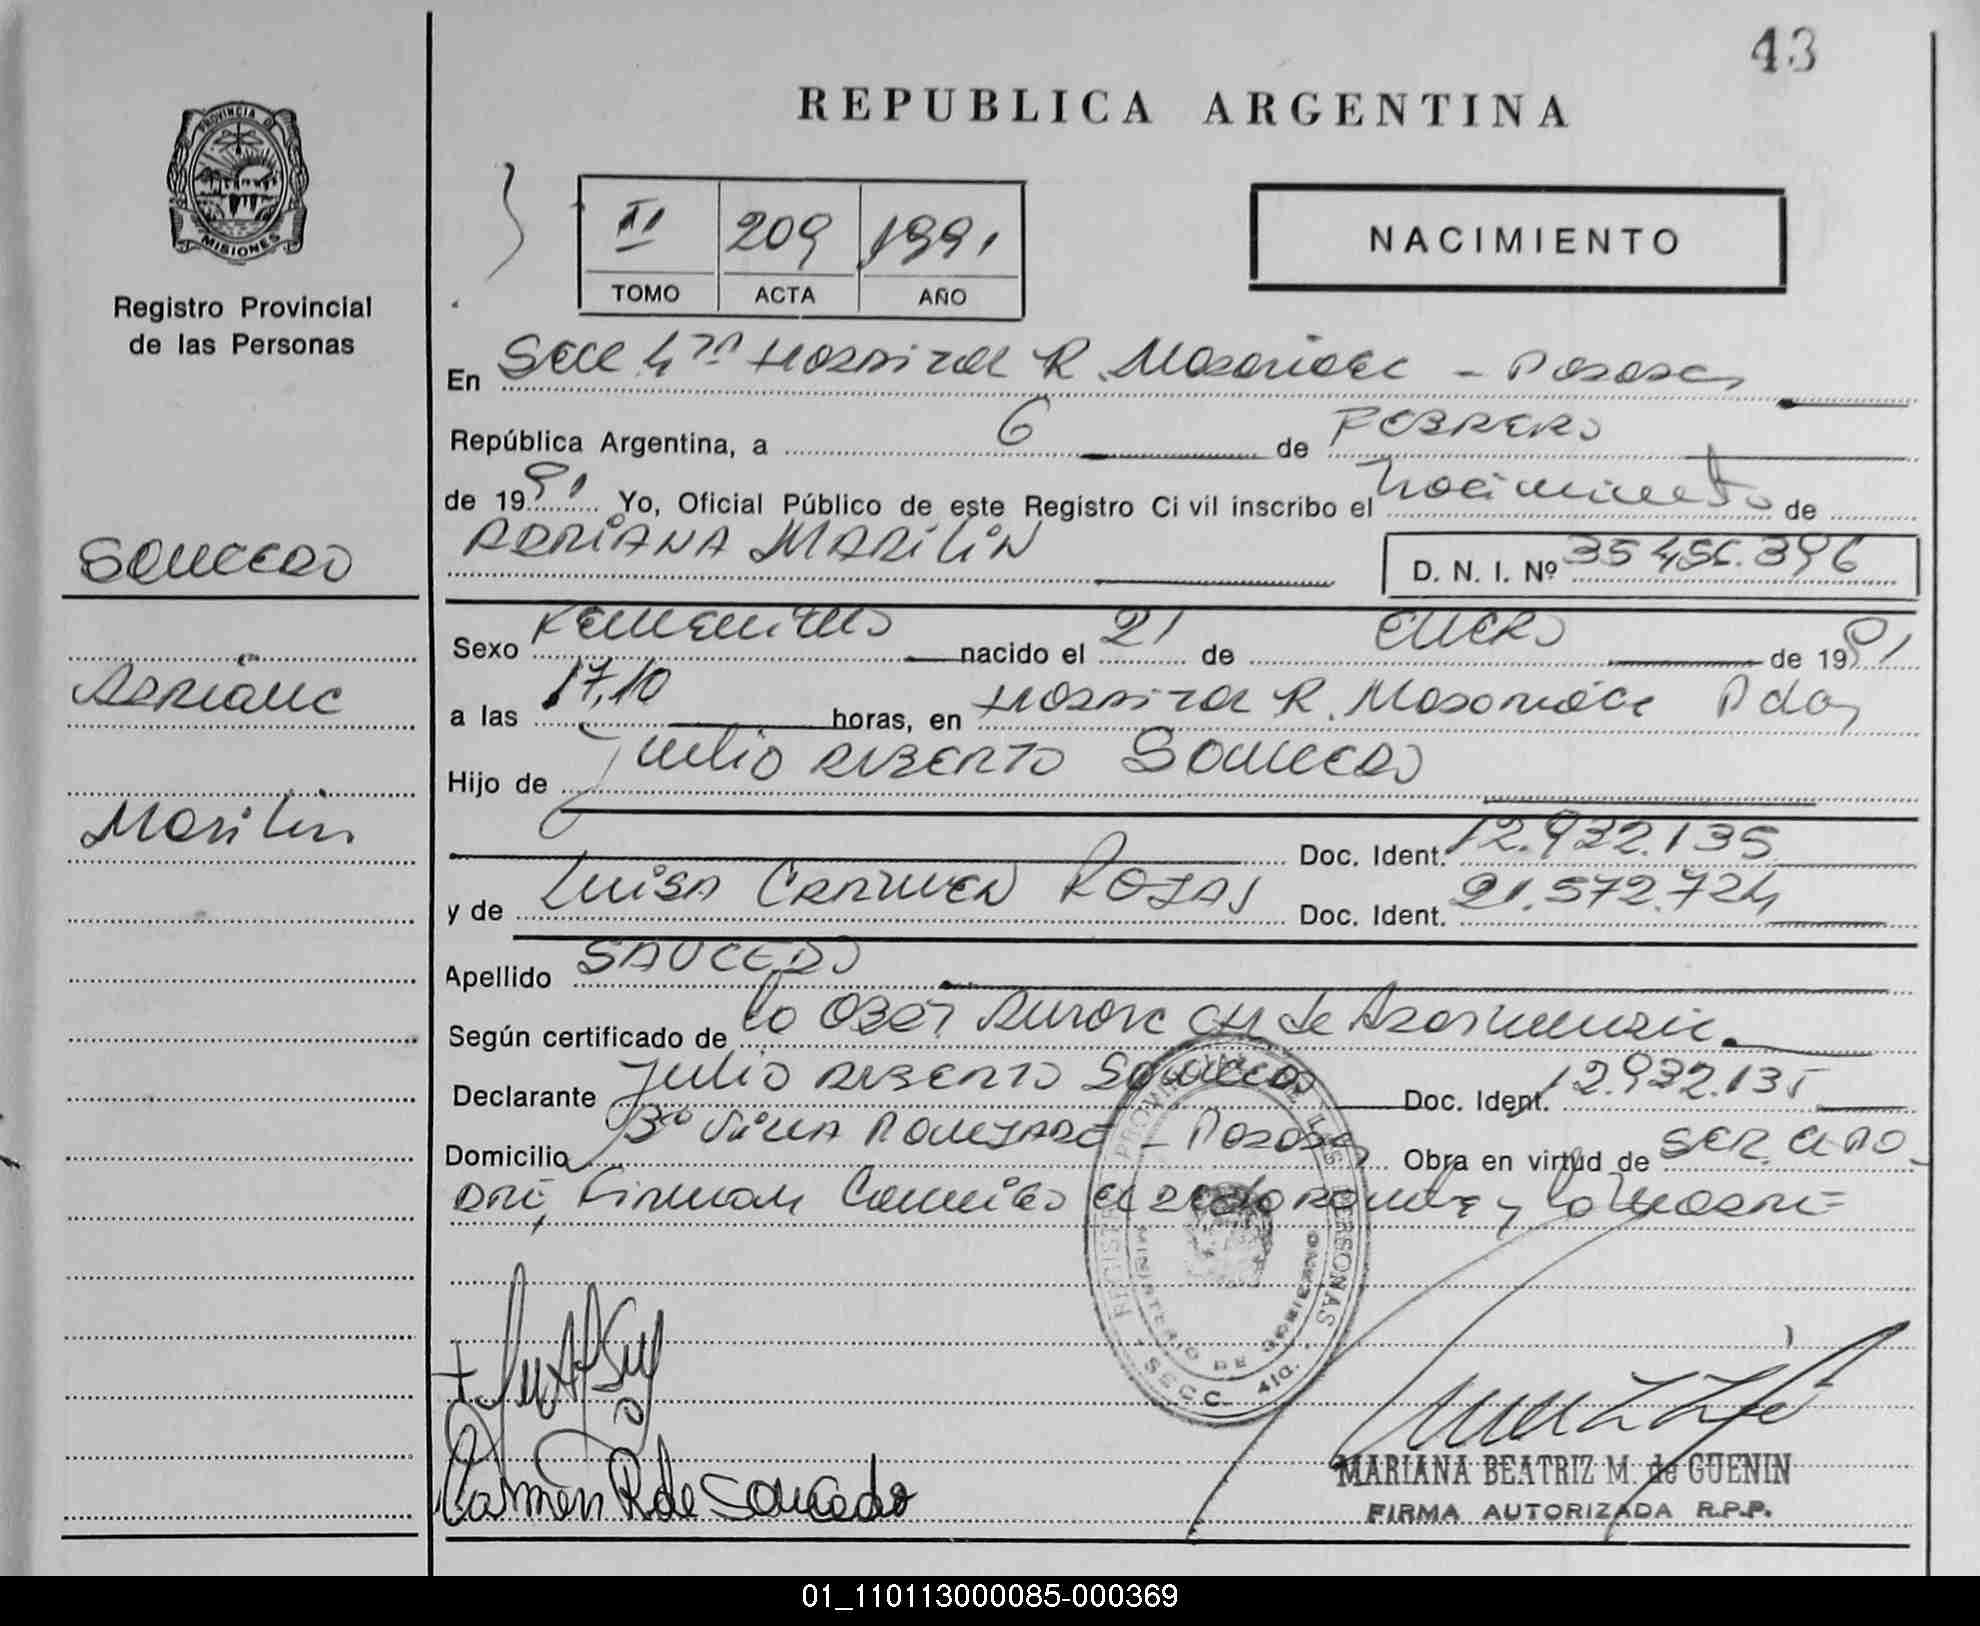 43
REPUBLICA ARGENTINA
PROVINCIA DE
MISIONES
Registro Provincial
de las Personas
II 209 1991
TOMO ACTA AÑO
NACIMIENTO
En Secc 4ta Hospital R. Madariaga - Posadas
República Argentina, a 6 de FEBRERO
de 1991 Yo, Oficial Público de este Registro Civil inscribo el Nacimiento de
ADRIANA MARILIN
D. N. I. Nº
Saucedo
Adriana
Marilin
Sexo Femenino nacido el 21 de ENERO de 1991
a las 17,10 horas, en Hospital R. Madariaga Pdas
Hijo de Julio Alberto Saucedo
Doc. Ident. 12.932.135
y de Luisa Carmen Rojas Doc. Ident. 21.572.724
Apellido SAUCEDO
Según certificado de la Obst Aurora de
Declarante Julio Alberto Saucedo Doc. Ident. 12.932.135
Domicilio Bº Villa - Posadas Obra en virtud de SER EL PA-
DRE, Firman Conmigo el Declarante y la Madre=
REGISTRO PROVINCIAL DE LAS PERSONAS
MINISTERIO DE GOBIERNO
SECC. 4ta.
Carmen R de Saucedo
MARIANA BEATRIZ M. de GUENIN
FIRMA AUTORIZADA R.P.P.
01_110113000085-000369